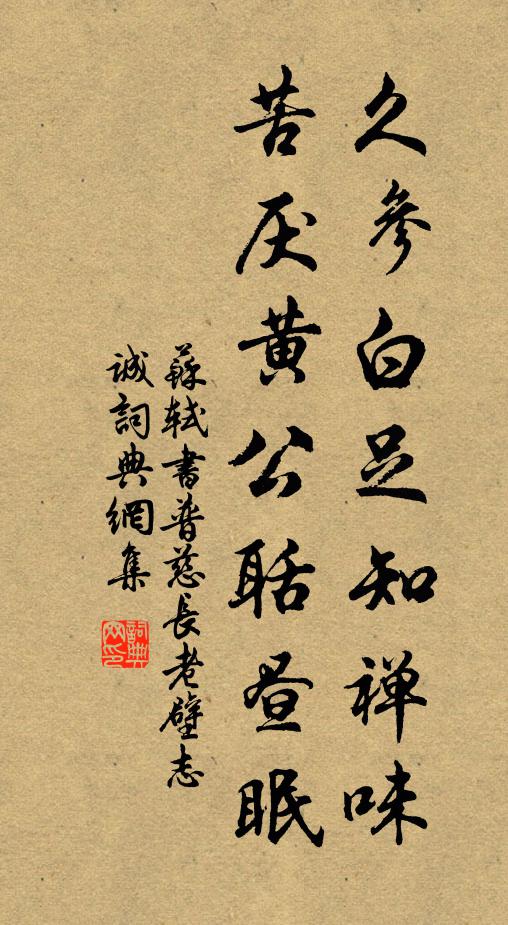 久參白足知禅味
苦厌黄公聒昼眠
蘇轼書普慈長老壁志
誠詞典網集
詞典
网印